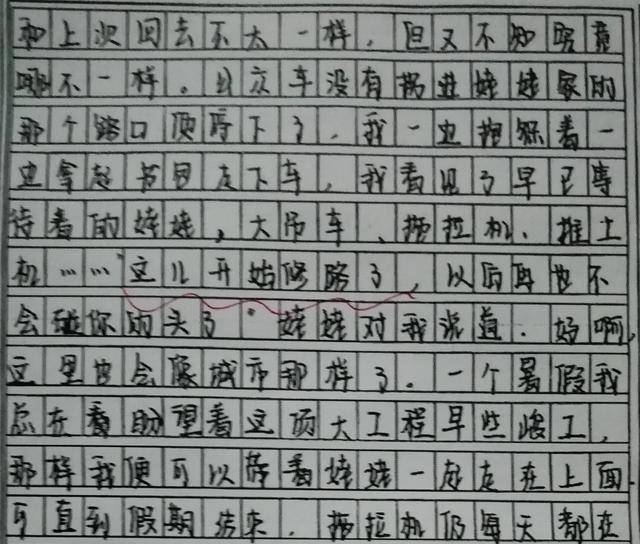 和上次回去不太一样，但又不知晓竟
哪不一样。公交车没有拐进姥姥家的
那个路口便停下了，我一边抱怨着一
边拿起书包走下车，我看见了早已等
待着的姥姥，大吊车、拖拉机、推土
机……"这儿开始修路了，以后再也不
会碰你的头了"姥姥对我说道．好啊，
这里也会像城市那样了。一个暑假我
总在着盼望着这项大工程早些竣工，
那样我便可以带着姥姥一起走在上面．
可直到假期结束．拖拉机仍每天都在